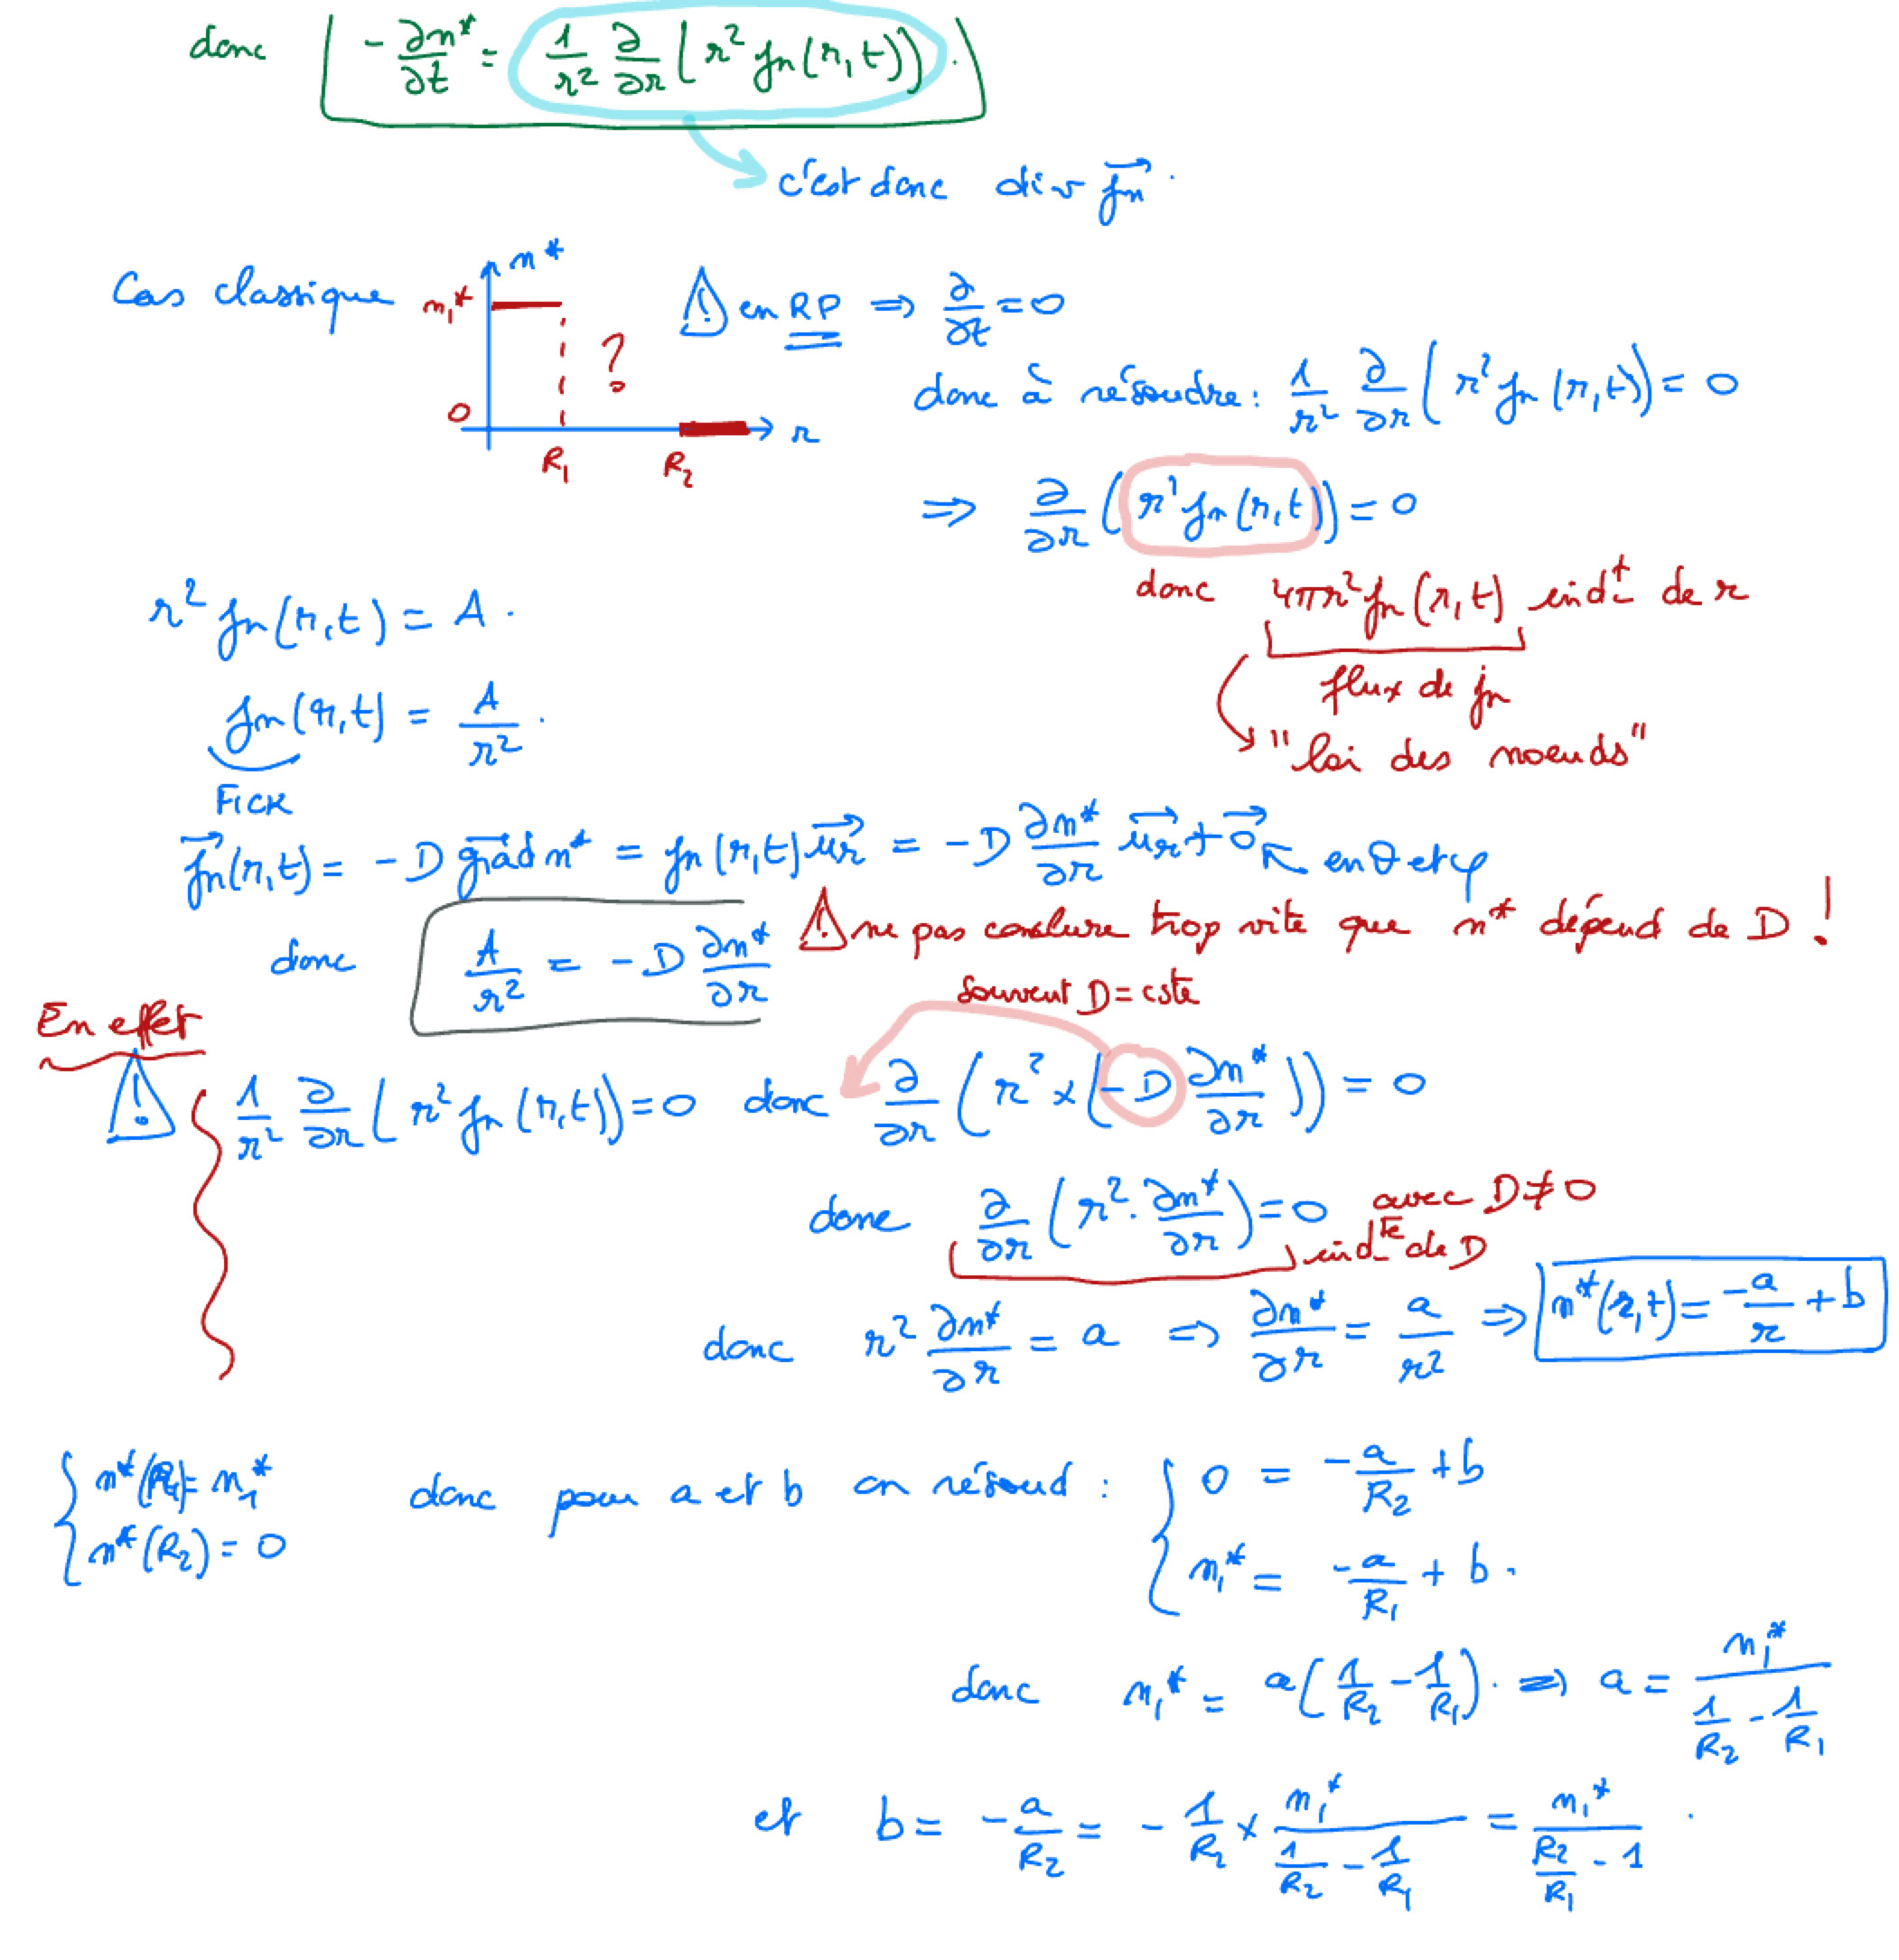 donc -∂n*/∂t = 1/r² ∂/∂r (r² jn(r,t)).
c'est donc div jn⃗.
Cas classique
n*
n₁*
?
0
r
R₁ R₂
⚠ en RP ⇒ ∂/∂t = 0
donc à résoudre : 1/r² ∂/∂r (r² jn(r,t)) = 0
⇒ ∂/∂r (r² jn(r,t)) = 0
donc 4πr² jn(r,t) indt de r
flux de jn
"loi des noeuds"
r² jn(r,t) = A.
jn(r,t) = A/r².
FICK
jn⃗(r,t) = -D grad⃗ n* = jn(r,t) ur⃗ = -D ∂n*/∂r ur⃗ + 0⃗ en θ et φ
donc A/r² = -D ∂n*/∂r
⚠ ne pas conclure trop vite que n* dépend de D !
souvent D = cste
En effet
⚠ 1/r² ∂/∂r (r² jn(r,t)) = 0 donc ∂/∂r (r² × (-D ∂n*/∂r)) = 0
donc ∂/∂r (r². ∂n*/∂r) = 0 avec D ≠ 0
indte de D
donc r² ∂n*/∂r = a ⇒ ∂n*/∂r = a/r² ⇒ n*(r,t) = -a/r + b
{ n*(R₁) = n₁*
n*(R₂) = 0
donc pour a et b on résoud : { 0 = -a/R₂ + b
n₁* = -a/R₁ + b.
donc n₁* = a(1/R₂ - 1/R₁). ⇒ a = n₁*/(1/R₂ - 1/R₁)
et b = -a/R₂ = -1/R₂ × n₁*/(1/R₂ - 1/R₁) = n₁*/(R₂/R₁ - 1).